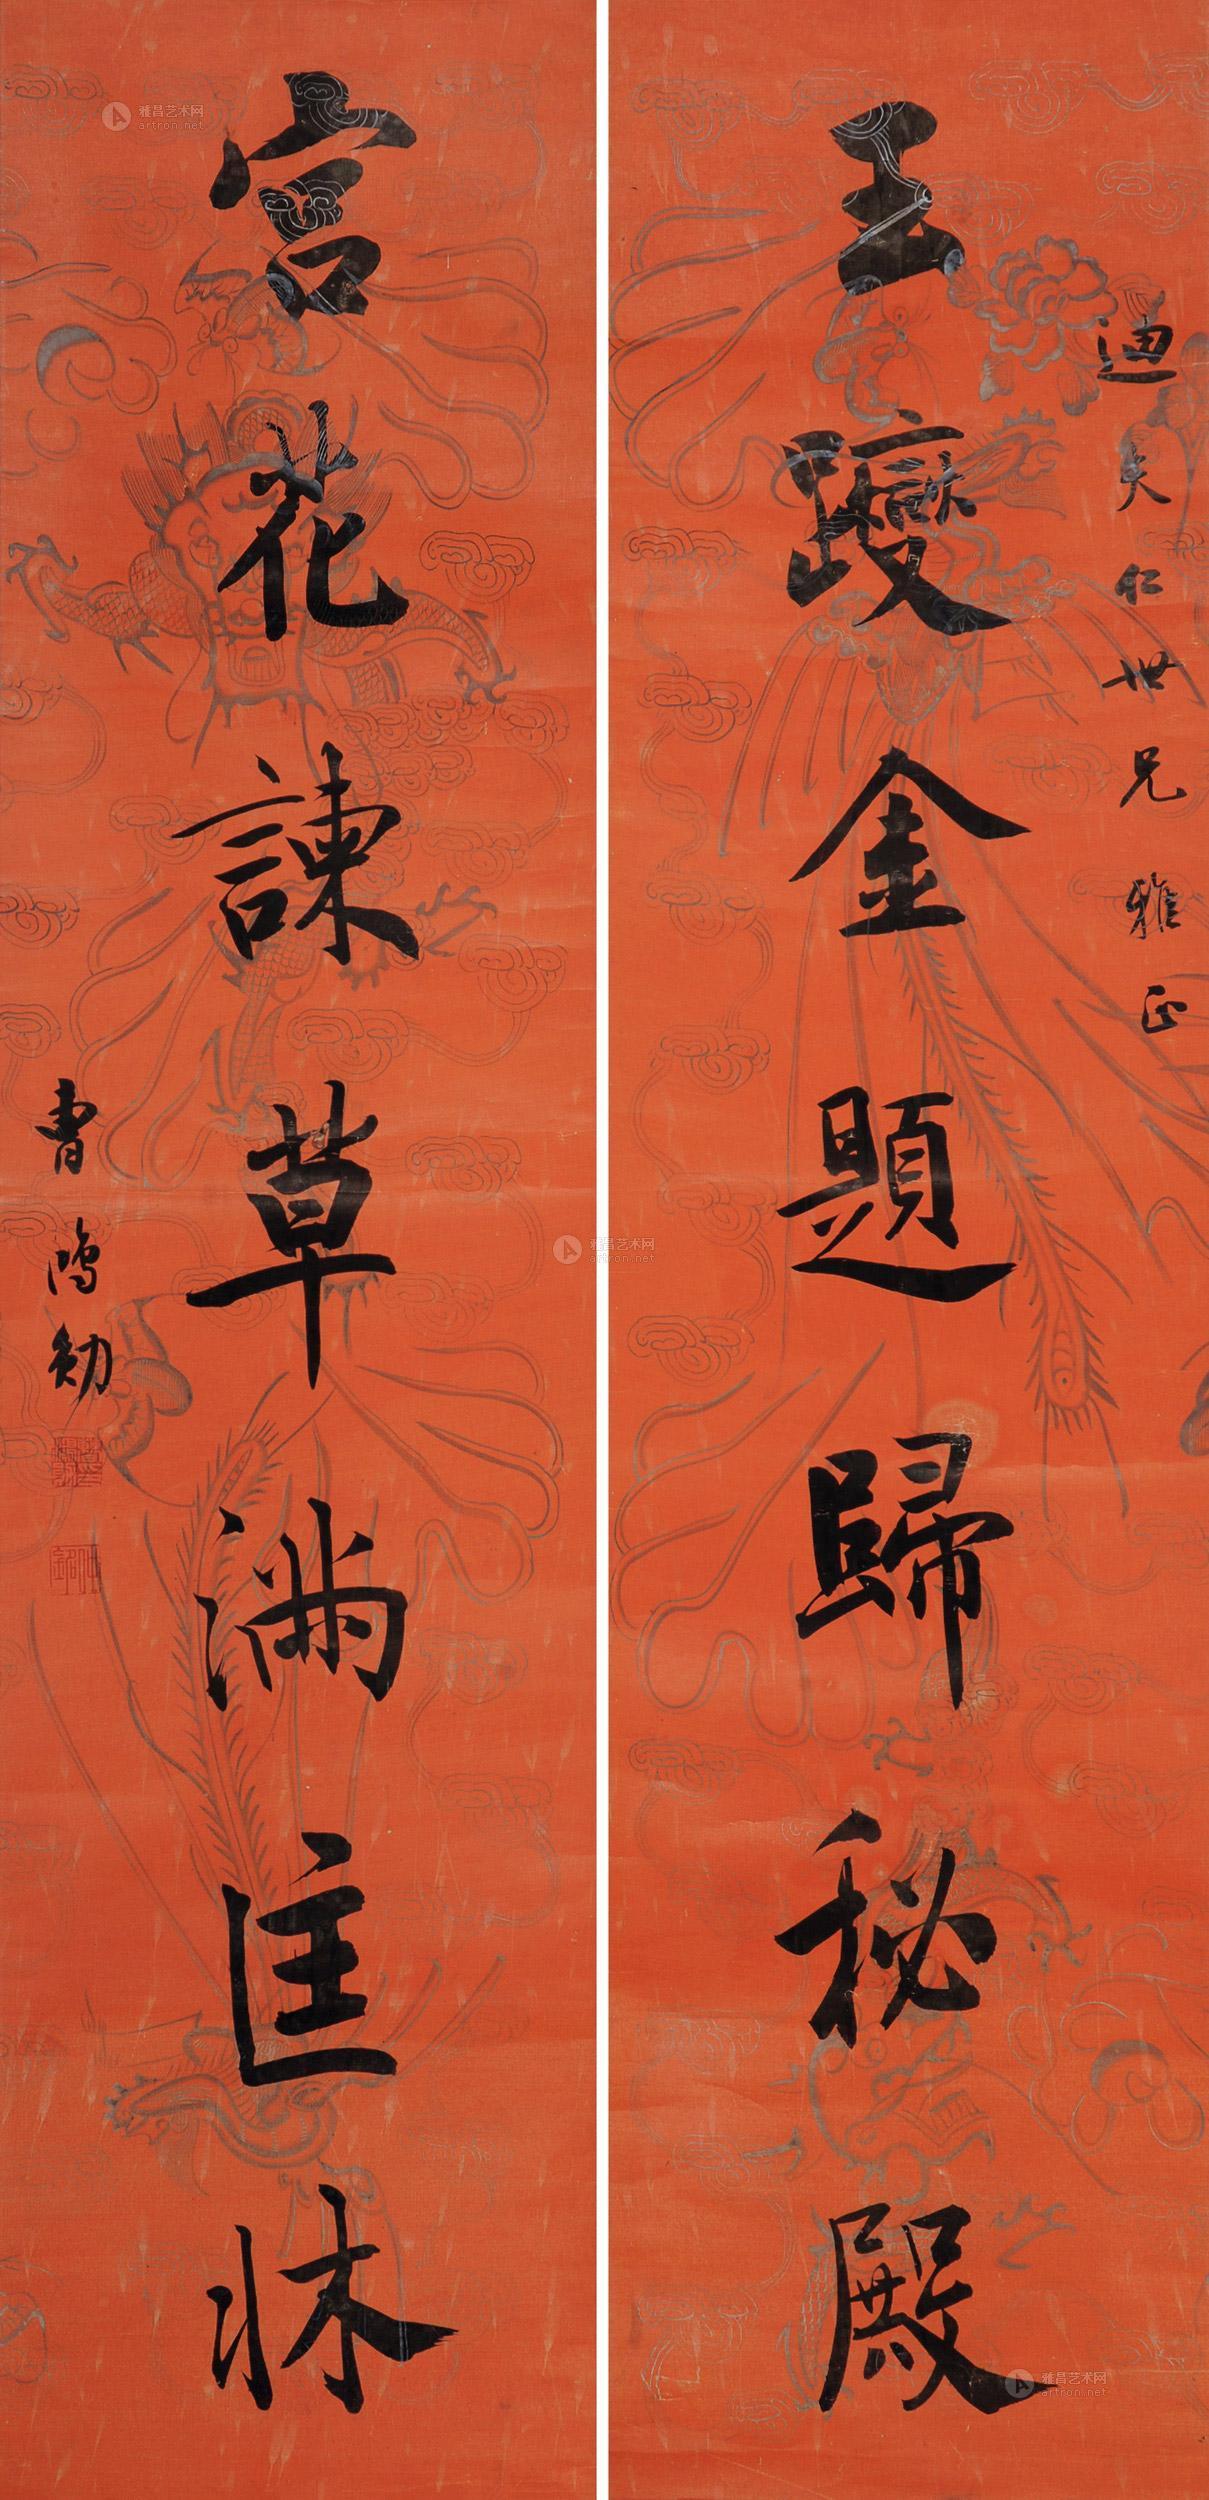 迪夫仁世兄雅正
玉躞金題歸秘殿
宮花諫草滿匡牀
曹鴻勛
曹鴻勛印
仲銘
雅昌艺术网
artron.net
雅昌艺术网
artron.net
雅昌艺术网
artron.net